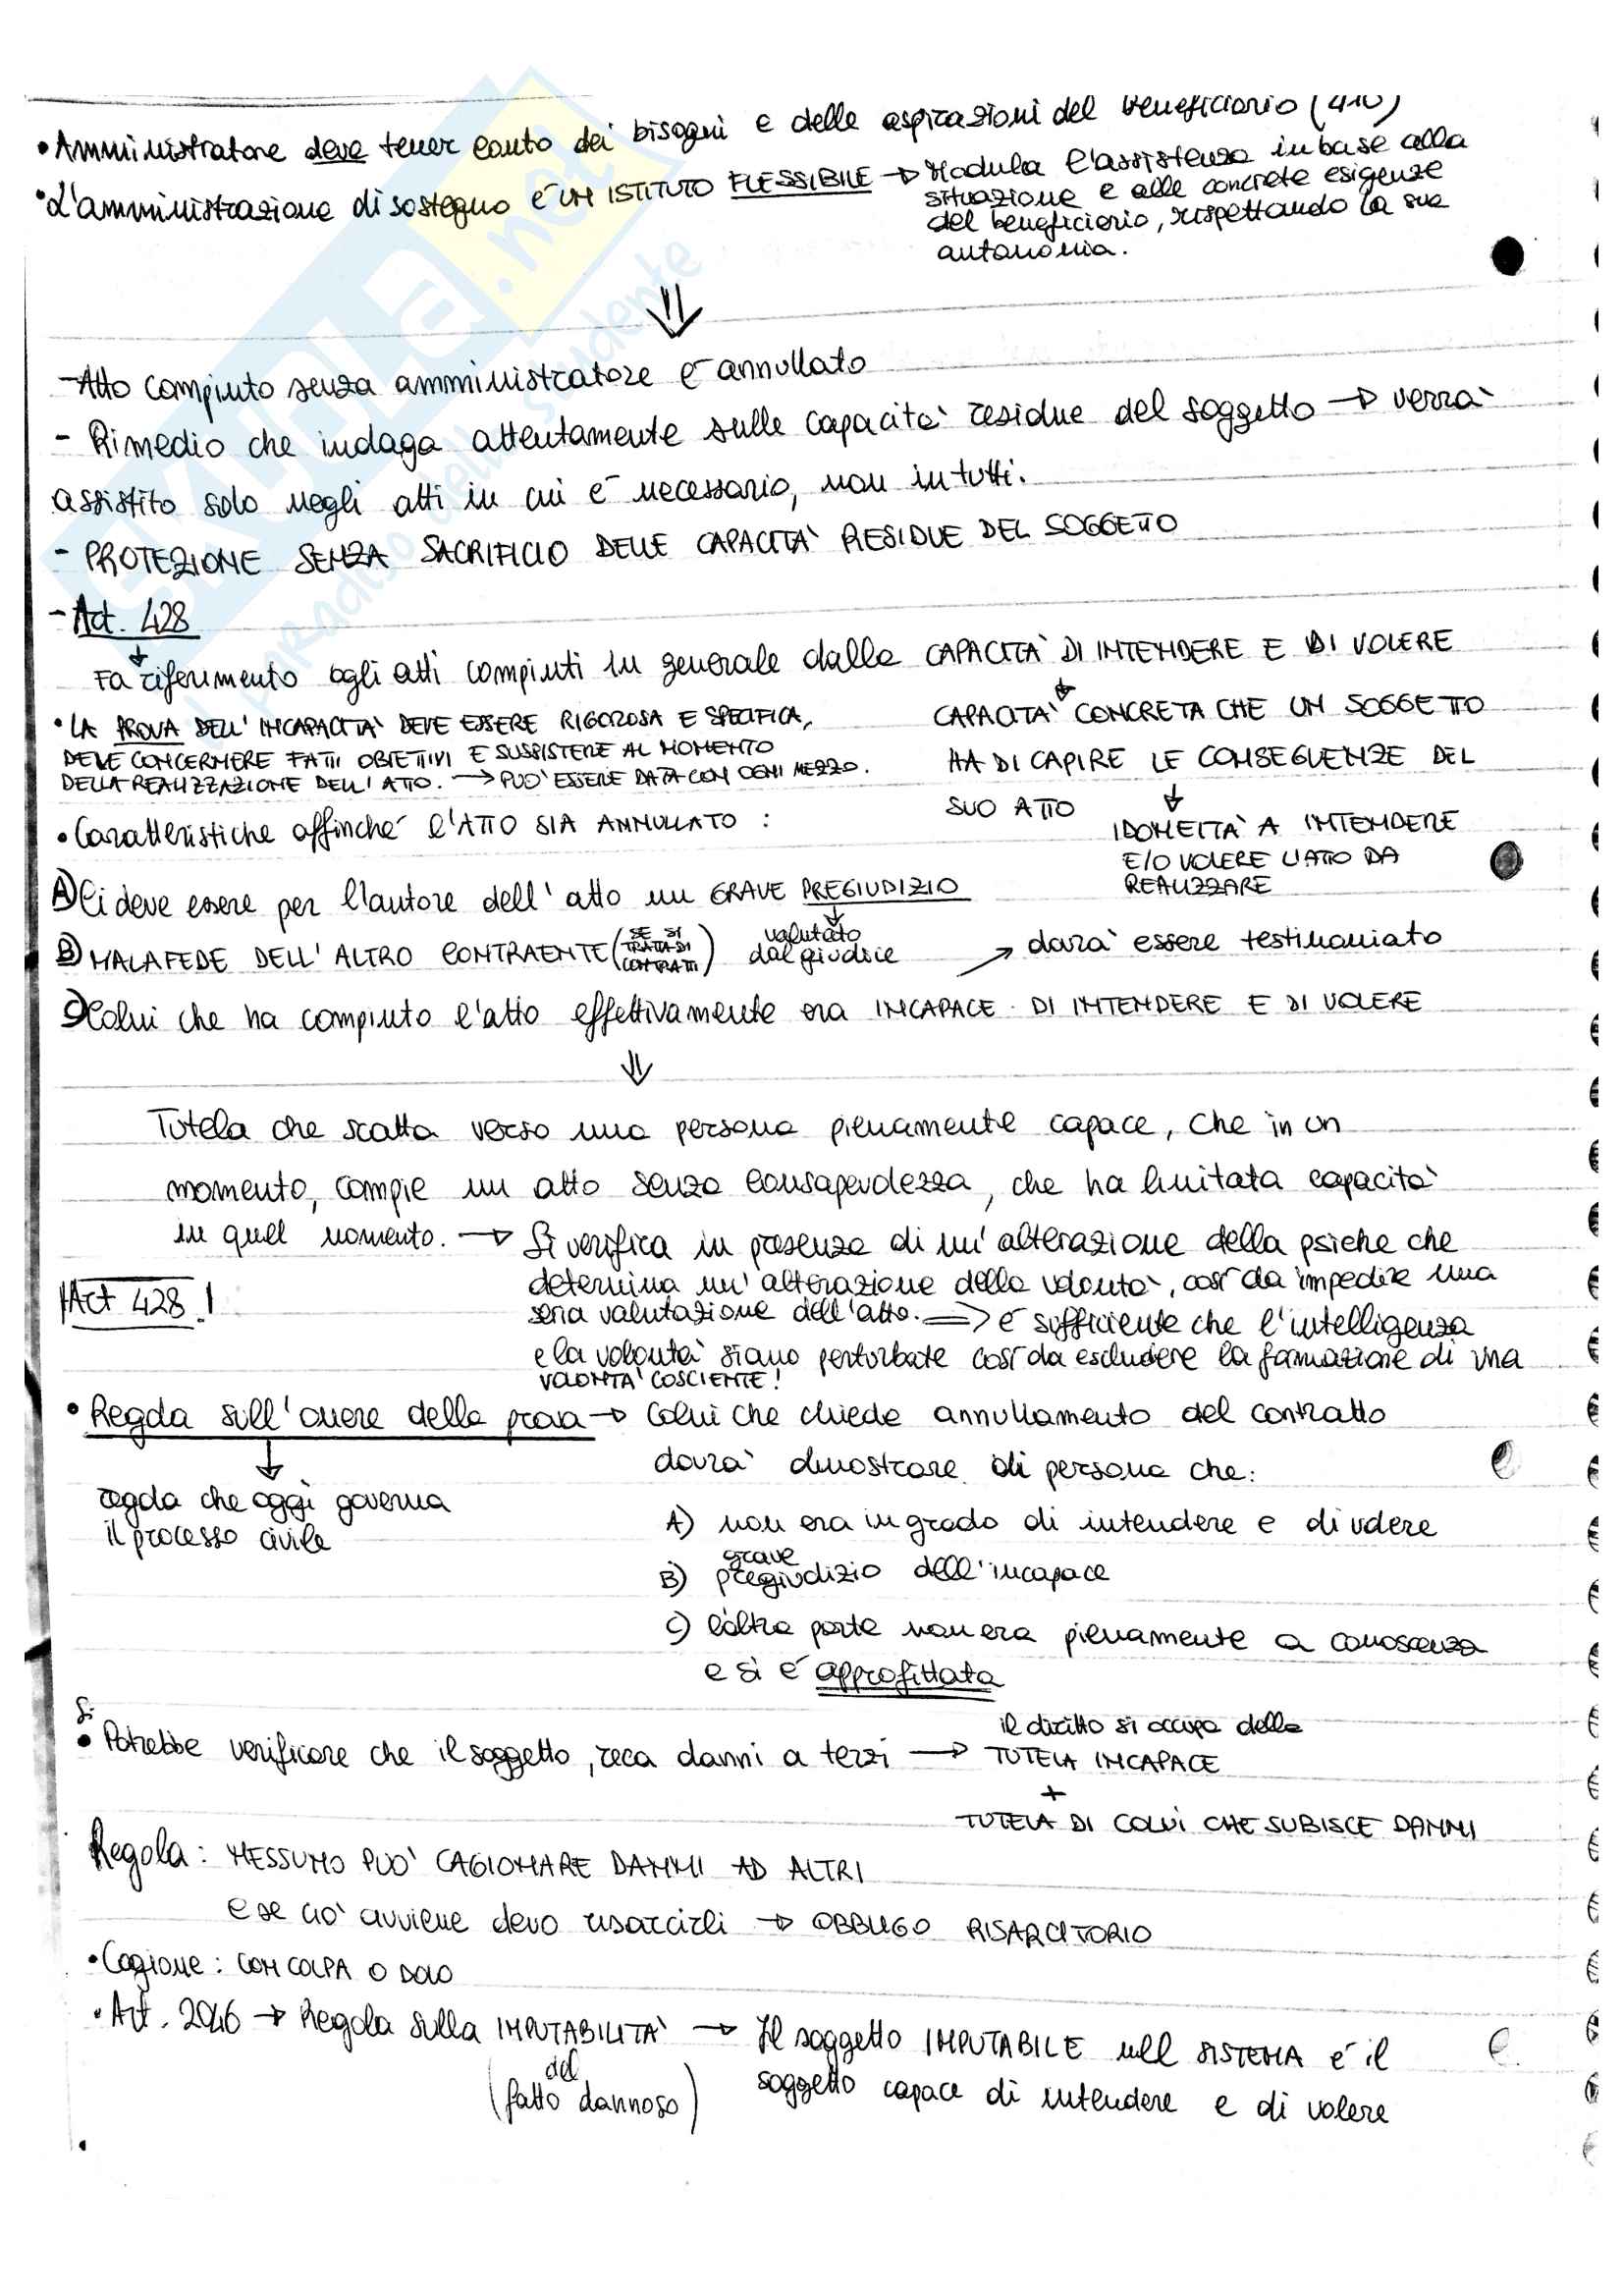 • Amministratore deve tener conto dei bisogni e delle aspirazioni del beneficiario (410)
• L'amministrazione di sostegno é UN ISTITUTO FLESSIBILE → Modula l'assistenza in base alla
situazione e alle concrete esigenze
del beneficiario, rispettando la sua
autonomia.
⇓
- Atto compiuto senza amministratore é annullato
- Rimedio che indaga attentamente sulle capacità residue del soggetto → verrà
assistito solo negli atti in cui é necessario, non in tutti.
- PROTEZIONE SENZA SACRIFICIO DELLE CAPACITÀ RESIDUE DEL SOGGETTO
- Art. 428
↓
Fa riferimento agli atti compiuti in generale dalla CAPACITÀ DI INTENDERE E DI VOLERE
• LA PROVA DELL'INCAPACITÀ DEVE ESSERE RIGOROSA E SPECIFICA,
DEVE CONCERNERE FATTI OBIETTIVI E SUSSISTERE AL MOMENTO
DELLA REALIZZAZIONE DELL'ATTO. → PUÒ ESSERE DATA CON OGNI MEZZO.
↓
CAPACITÀ CONCRETA CHE UN SOGGETTO
HA DI CAPIRE LE CONSEGUENZE DEL
SUO ATTO
↓
IDONEITÀ A INTENDERE
E/O VOLERE L'ATTO DA
REALIZZARE
• Caratteristiche affinché l'ATTO SIA ANNULLATO :
A) Ci deve essere per l'autore dell'atto un GRAVE PREGIUDIZIO
↓
valutato
dal giudice
B) MALAFEDE DELL'ALTRO CONTRAENTE (SE SI TRATTA DI CONTRATTI)
→ dovrà essere testimoniato
C) Colui che ha compiuto l'atto effettivamente era INCAPACE DI INTENDERE E DI VOLERE
⇓
Tutela che scatta verso una persona pienamente capace, che in un
momento, compie un atto senza consapevolezza, che ha limitata capacità
in quel momento. → Si verifica in presenza di un'alterazione della psiche che
determina un'alterazione della volontà, così da impedire una
seria valutazione dell'atto. ⇒ é sufficiente che l'intelligenza
e la volontà siano perturbate così da escludere la formazione di una
VOLONTÀ COSCIENTE!
Art 428 !
• Regola sull'onere della prova → Colui che chiede annullamento del contratto
dovrà dimostrare di persona che:
↓
regola che oggi governa
il processo civile
A) non era in grado di intendere e di volere
B) grave pregiudizio dell'incapace
C) l'altra parte non era pienamente a conoscenza
e si é approfittata
• Si Potrebbe verificare che il soggetto, reca danni a terzi → il diritto si occupa della
TUTELA INCAPACE
+
TUTELA DI COLUI CHE SUBISCE DANNI
Regola : NESSUNO PUÒ CAGIONARE DANNI AD ALTRI
e se ciò avviene devo risarcirli → OBBLIGO RISARCITORIO
• Cagione : CON COLPA O DOLO
• Art. 2046 → Regola sulla IMPUTABILITÀ → Il soggetto IMPUTABILE nel SISTEMA é il
(del fatto dannoso)
soggetto capace di intendere e di volere
SKUOLA.net
il paradiso dello studente